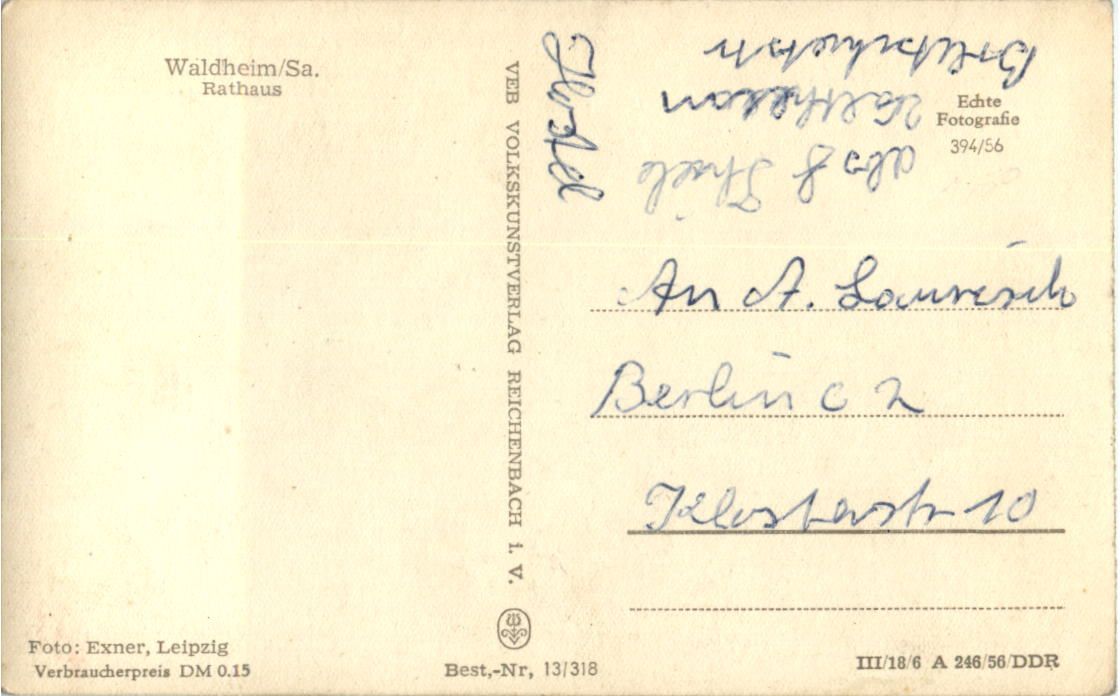 Waldheim/Sa.
Rathaus
VEB VOLKSKUNSTVERLAG REICHENBACH i. V.
Echte
Fotografie
394/56
abs Thiele
An A.
Berlin C 2
Klosterstr 10
Foto: Exner, Leipzig
Verbraucherpreis DM 0.15
Best,-Nr, 13/318
III/18/6 A 246/56/DDR